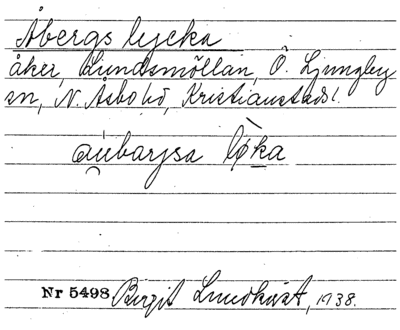 Åbergs lycka
åker, Lundsmöllan, Ö. Ljungby
sn, N. Åsbo hd, Kristianstads l.
aubarjsa løka
Nr 5498 Birgit Lundkvist, 1938.